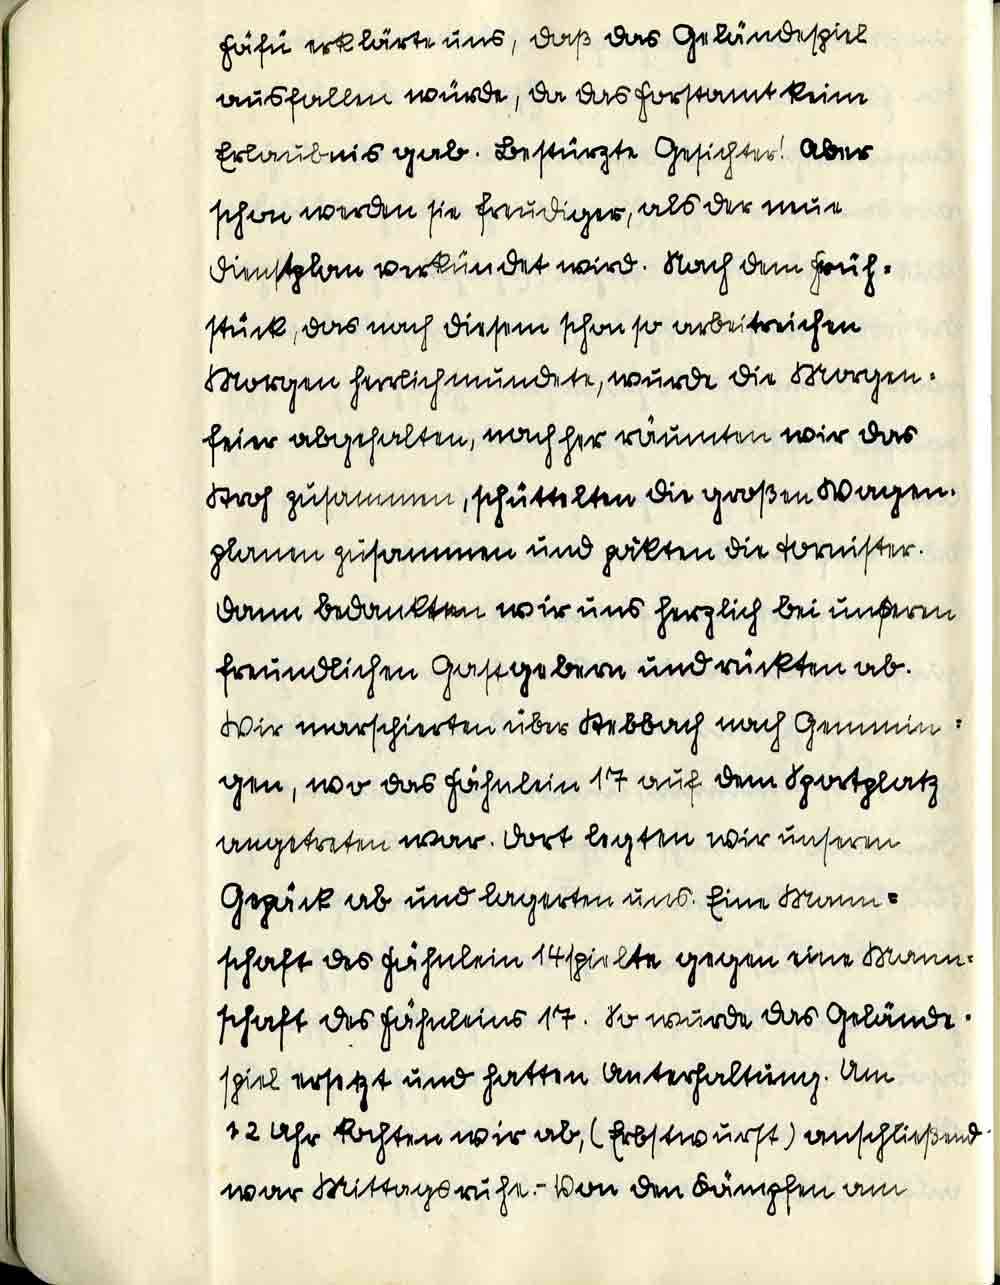 Fäfü erklärte uns, daß das Geländespiel
ausfallen würde, da das Forstamt keine
Erlaubnis gab. Bestürzte Gesichter! Aber
schon werden sie freudiger, als der neue
Dienstplan verkündet wird. Nach dem Früh-
stück, das nach diesem schon so arbeitreichen
Morgen herrlich mundete, wurde die Morgen-
feier abgehalten, nachher räumten wir das
Stroh zusammen, schüttelten die großen Wagen-
planen zusammen und packten die Tornister.
Dann bedankten wir uns herzlich bei unseren
freundlichen Gastgebern und rückten ab.
Wir marschierten über Stebbach nach Gemmin=
gen, wo das Fähnlein 17 auf dem Sportplatz
angetreten war. Dort legten wir unseren
Gepäck ab und lagerten uns. Eine Mann=
schaft des Fähnlein 14 spielte gegen eine Mann=
schaft des Fähnleins 17. So wurde das Gelände-
spiel ersetzt und hatten Unterhaltung. Um
12 Uhr kochten wir ab, (Erbstwurst) anschließend
war Mittagsruhe.- Von den Kämpfen am